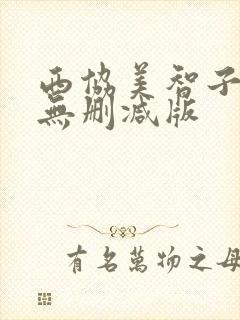 西協美智子
無删减版
有名萬物之母